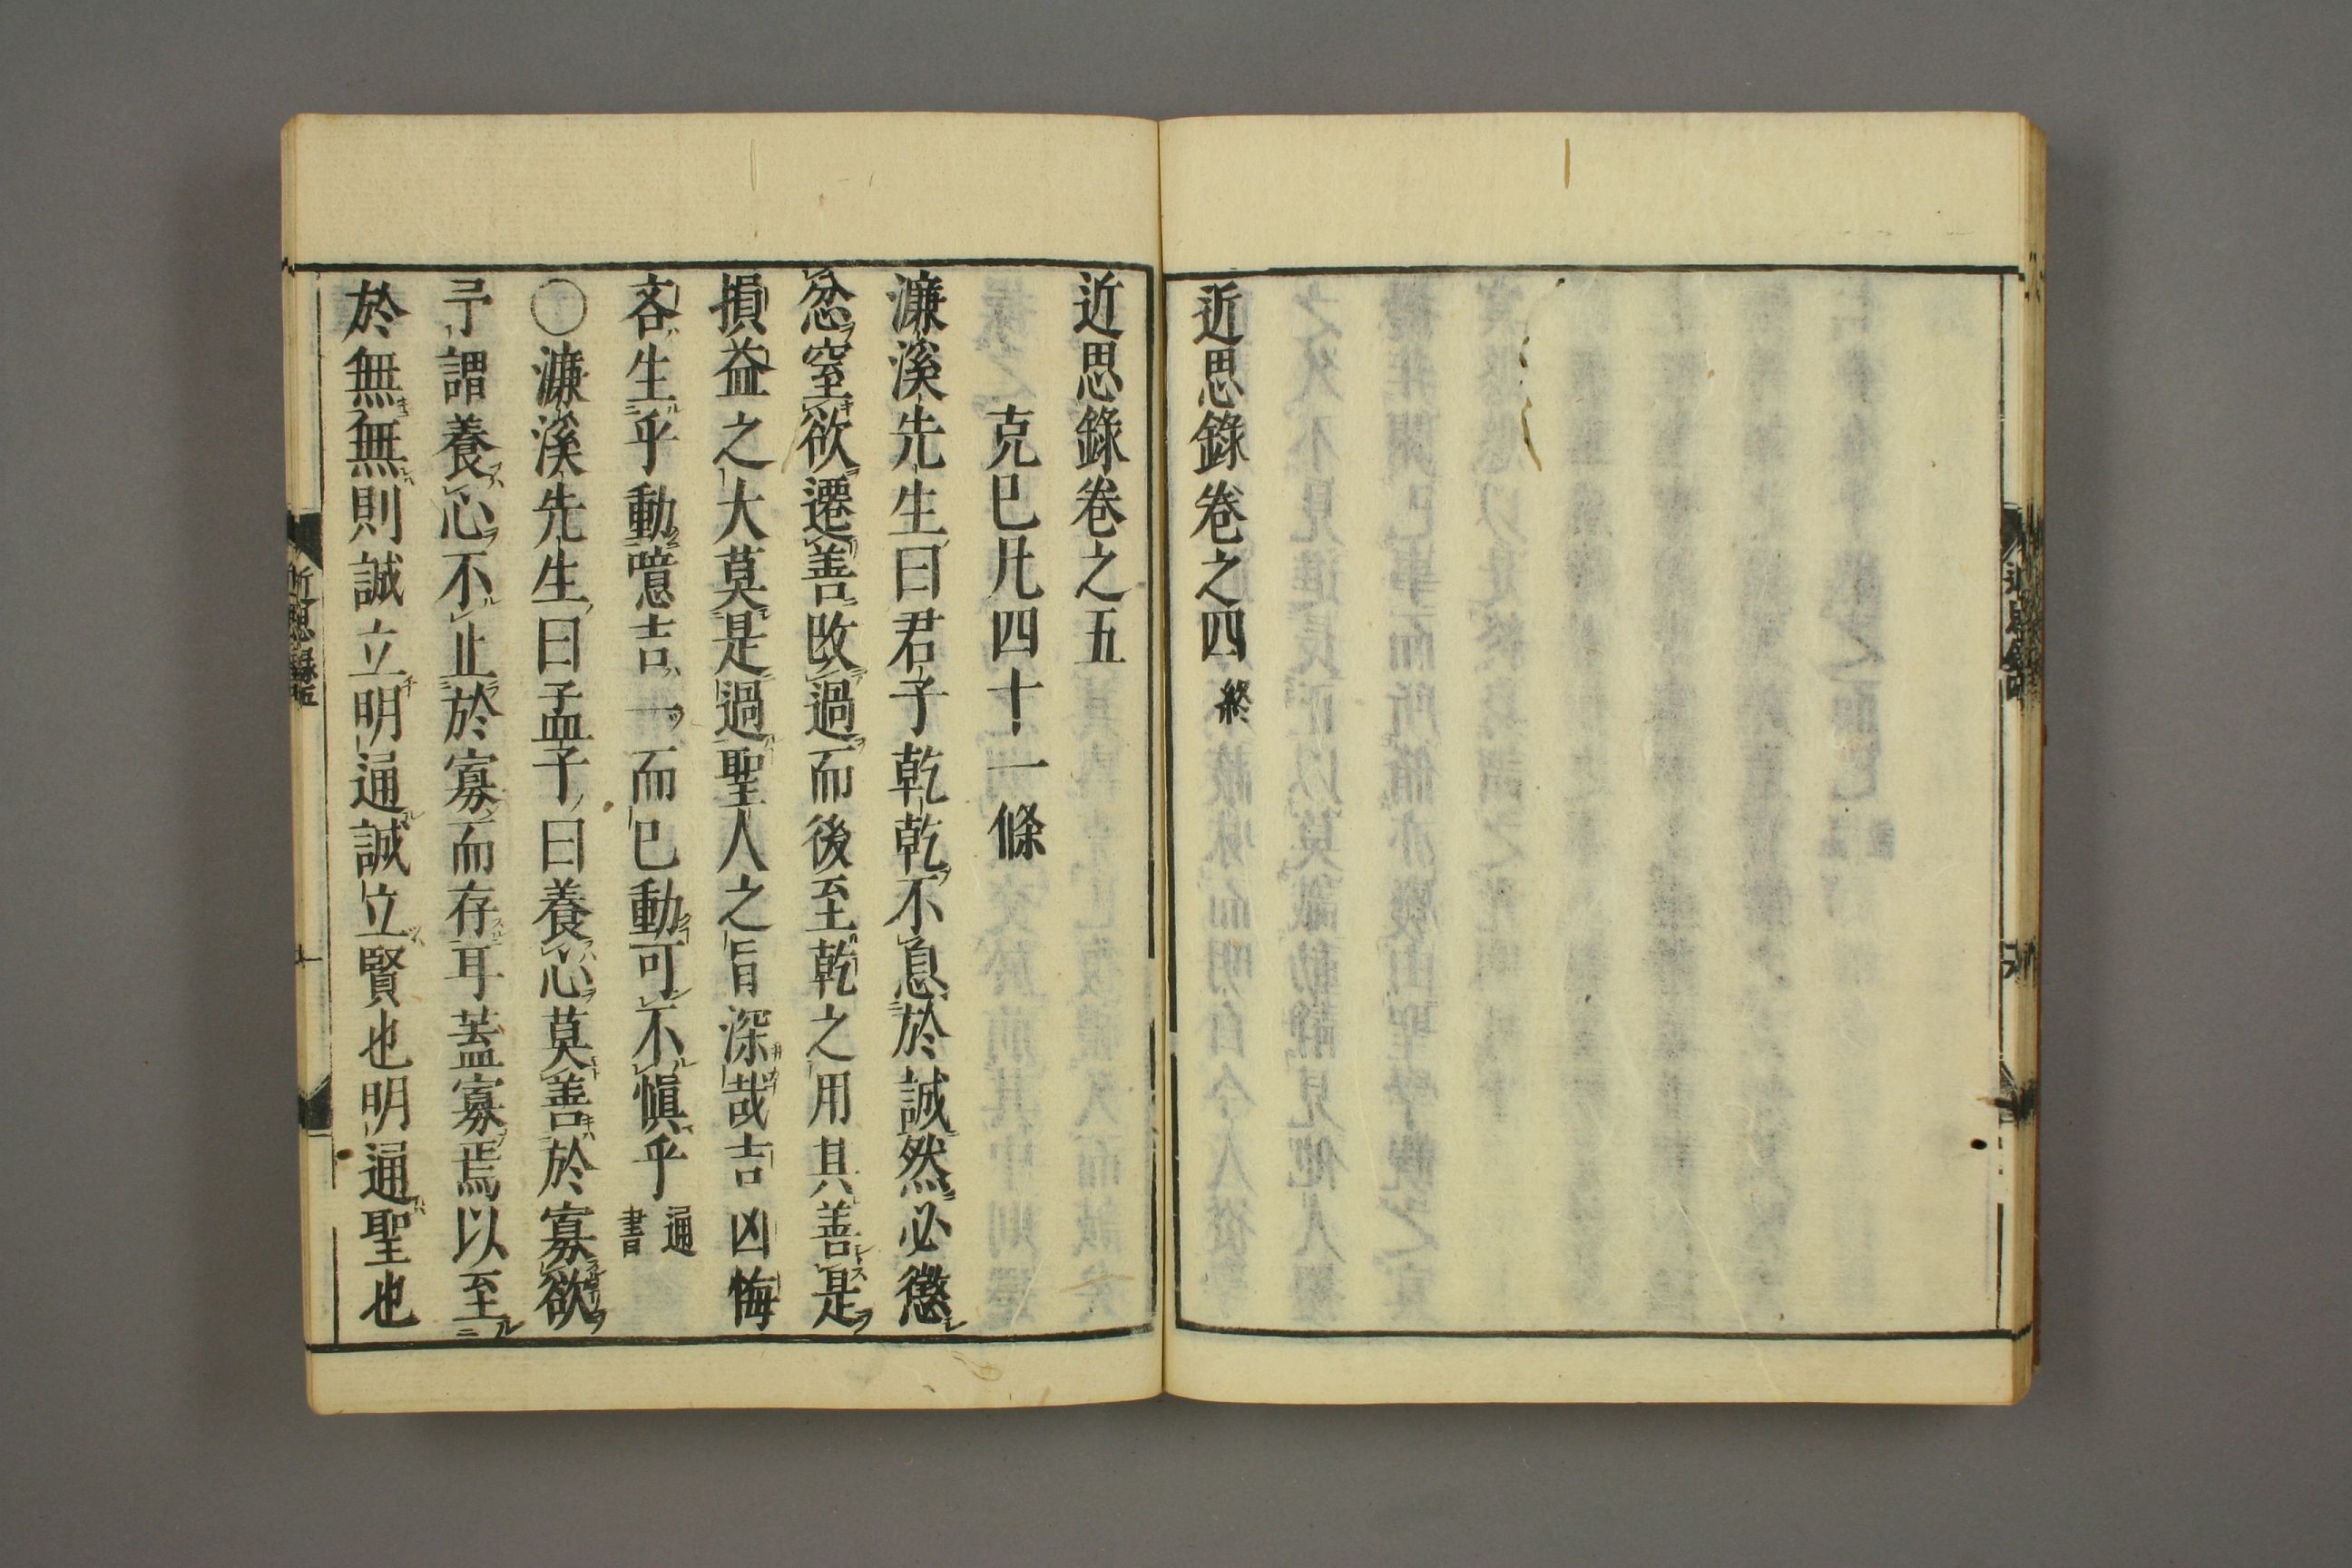 近思錄卷之四 終
近思錄卷之五
克已凡四十一條
濂溪先生曰君子乾乾不息於誠然必懲
忿窒欲遷善改過而後至乾之用其善是
損益之大莫是過聖人之旨深哉吉凶悔
吝生乎動噫吉一而已動可不愼乎 通書
〇濂溪先生曰孟子曰養心莫善於寡欲
予謂養心不止於寡而存耳蓋寡焉以至
於無無則誠立明通誠立賢也明通聖也
近思錄五